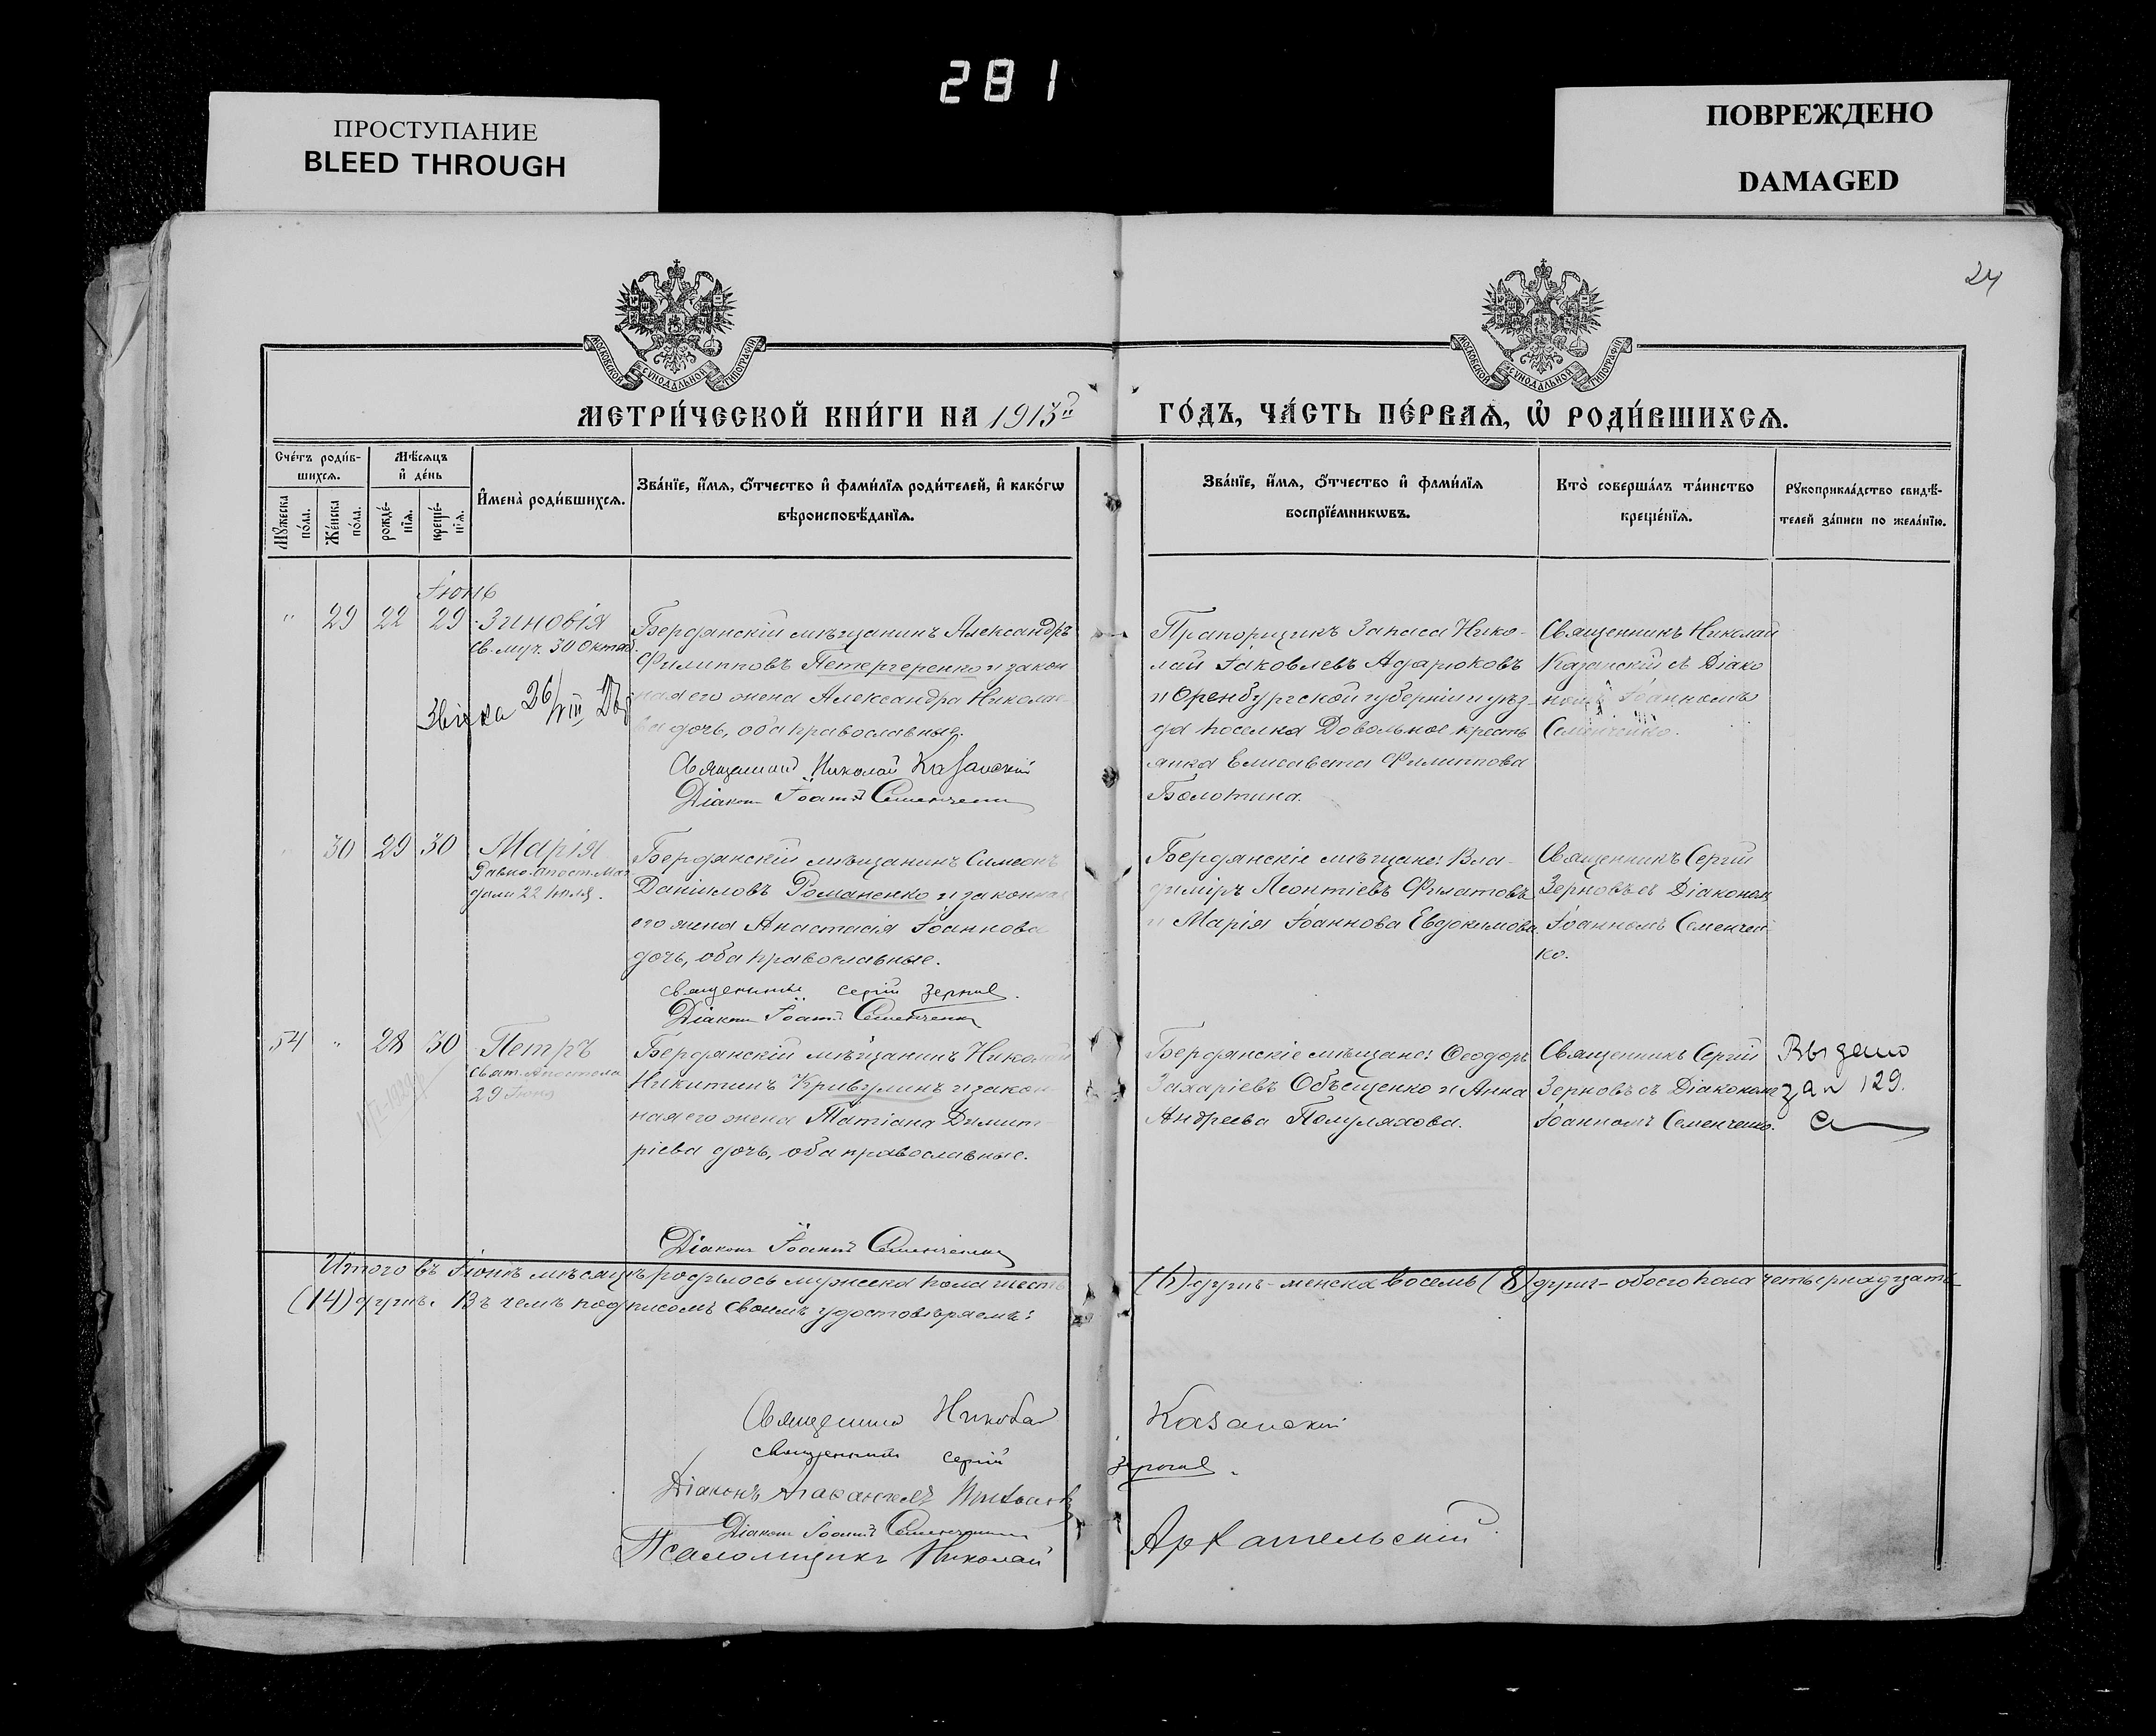 281
ПРОСТУПАНИЕ
BLEED THROUGH
ПОВРЕЖДЕНО
DAMAGED
24
МОСКОВСКОЙ СѴНОДАЛЬНОЙ ТИПОГРАФІИ
МОСКОВСКОЙ СѴНОДАЛЬНОЙ ТИПОГРАФІИ
МЕТРИ́ЧЕСКОЙ КНИ́ГИ НА 1913й ГО́ДЪ, ЧА́СТЬ ПЕ́РВАѦ, Ѽ РОДИ́ВШИХСѦ.
Сче́тъ роди́в-
шихсѧ.
Мꙋ́жеска по́ла.
Же́нска по́ла.
Мѣ́сѧцъ
и҆ де́нь
рожде́-
нїѧ.
креще́-
нїѧ.
И҆мена̀ роди́вшихсѧ.
Зва́нїе, и҆́мѧ, ѻ҆́тчество и҆ фами́лїѧ роди́телей, и҆ како́гѡ
вѣроисповѣ́данїѧ.
Зва́нїе, и҆́мѧ, ѻ҆́тчество и҆ фами́лїѧ
воспрїе́мникѡвъ.
Кто̀ соверша́лъ та́инство
креще́нїѧ.
Рꙋкоприкла́дство свидѣ́-
телей за́писи по жела́нїю.
Іюнь
" 29 22 29 Зиновія
св. муч. 30 Октяб.
26/VIII
Бердянскій мѣщанинъ Александръ
Филипповъ Петергеренко и закон
ная его жена Александра Николае-
ва дочь, оба православные.
Священникъ Николай Казанскій
Діаконъ Іоаннъ Семенченко
Прапорщикъ Запаса Нико-
лай Іаковлевъ Адарюковъ
и Оренбургской губерніи и уѣз-
да поселка Довольное кресть
янка Елисавета Филиппова
Болотина.
Священникъ Николай
Казанскій съ Діако
номъ Іоанномъ
Семенченко.
30 29 30 Марія
Равно-апост. Маг
дали 22 Іюля.
Бердянскій мѣщанинъ Симеонъ
Даніиловъ Романенко и законная
его жена Анастасія Іоаннова
дочь, оба православные.
священникъ сергій зерновъ.
Діаконъ Іоаннъ Семенченко
Бердянскіе мѣщане: Вла-
диміръ Леонтіевъ Филатовъ
и Марія Іоаннова Евдокимова.
Священникъ Сергій
Зерновъ съ Діакономъ
Іоанномъ Семенчен-
ко.
54 " 28 30 Петръ
Свят. Апостола
29 Іюня
Бердянскій мѣщанинъ Николай
Никитинъ Кривулинъ и закон-
ная его жена Татіана Димит-
ріева дочь, оба православные.
Діаконъ Іоаннъ Семенченко
Бердянскіе мѣщане: Ѳеодоръ
Захаріевъ Объещенко и Анна
Андреева Полуляхова.
Священникъ Сергій
Зерновъ съ Діакономъ
Іоанномъ Семенченко.
Выдано
за № 129.
Итого въ Іюнѣ мѣсяцѣ родилось мужеска пола шесть (6) душъ - женска восемь (8) душъ - обоего пола четырнадцать
(14) душъ. Въ чемъ подписомъ своимъ удостовѣряемъ:
Священникъ Николай Казанскій
священникъ сергій зерновъ.
Діаконъ
Діаконъ Іоаннъ Семенченко
Псаломщикъ Николай Архангельскій